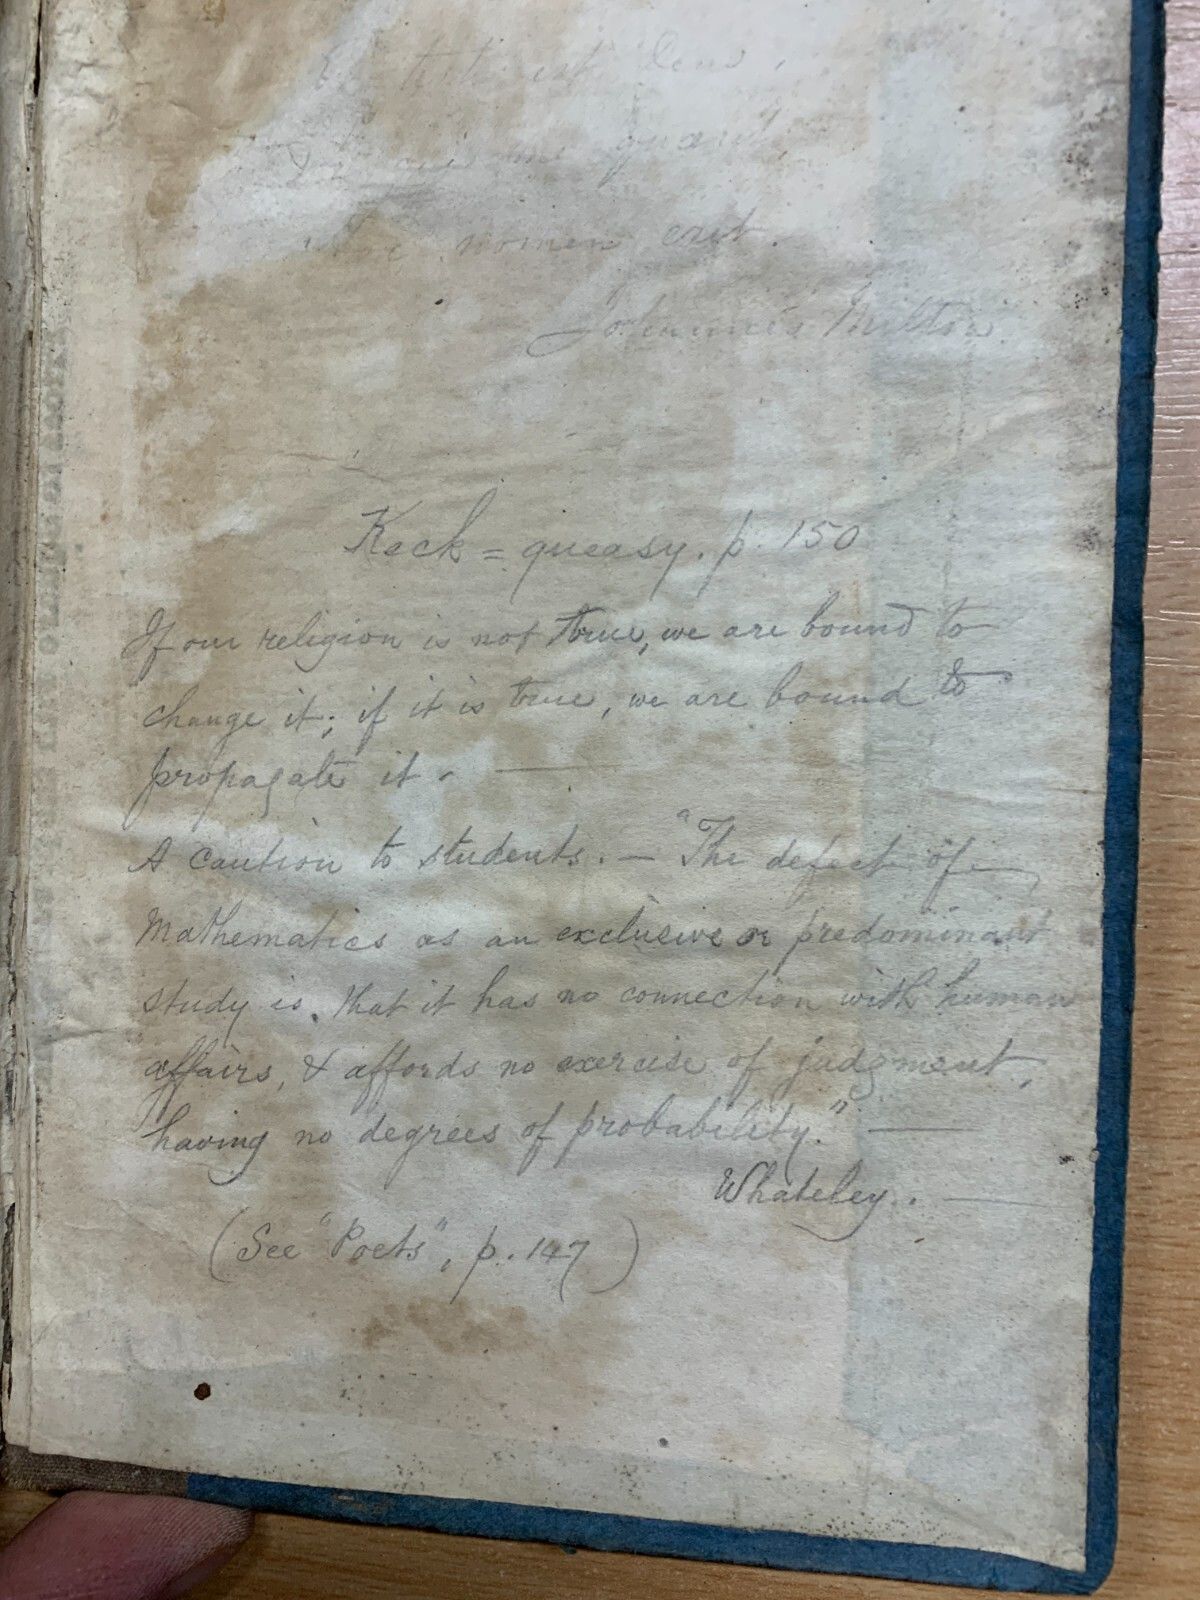 nomen erit.
Johannes Milton.
Keck = queasy. p. 150
If our religion is not true, we are bound to
change it; if it is true, we are bound to
propagate it. —
A caution to students. — "The defect of
Mathematics as an exclusive or predominant
study is, that it has no connection with human
affairs, & affords no exercise of judgment,
having no degrees of probability." —
Whateley. . —
(See "Poets", p. 147)